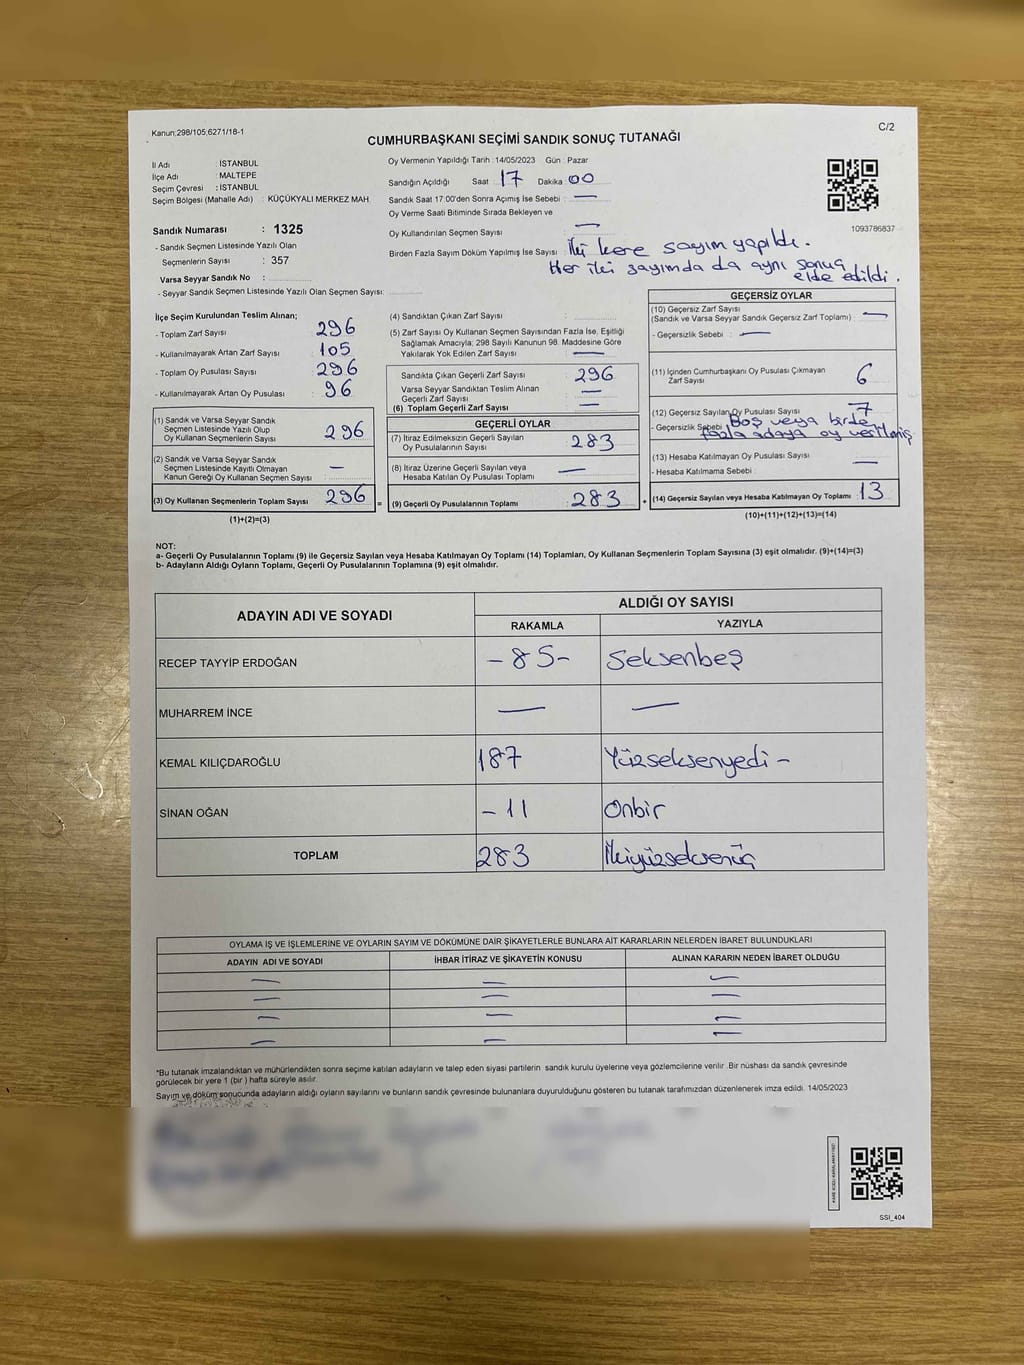 Kanun:298/105;6271/18-1
C/2
CUMHURBAŞKANI SEÇİMİ SANDIK SONUÇ TUTANAĞI
İl Adı : İSTANBUL
İlçe Adı : MALTEPE
Seçim Çevresi : İSTANBUL
Seçim Bölgesi (Mahalle Adı) : KÜÇÜKYALI MERKEZ MAH.
Sandık Numarası : 1325
- Sandık Seçmen Listesinde Yazılı Olan
Seçmenlerin Sayısı : 357
Varsa Seyyar Sandık No :
- Seyyar Sandık Seçmen Listesinde Yazılı Olan Seçmen Sayısı:
Oy Vermenin Yapıldığı Tarih :14/05/2023 Gün : Pazar
Sandığın Açıldığı Saat : 17 Dakika : 00
Sandık Saat 17:00'den Sonra Açımış İse Sebebi : —
Oy Verme Saati Bitiminde Sırada Bekleyen ve
Oy Kullandırılan Seçmen Sayısı : —
Birden Fazla Sayım Döküm Yapılmış İse Sayısı : İki kere sayım yapıldı.
Her iki sayımda da aynı sonuç
elde edildi.
1093786837
İlçe Seçim Kurulundan Teslim Alınan;
- Toplam Zarf Sayısı : 296
- Kullanılmayarak Artan Zarf Sayısı : 105
- Toplam Oy Pusulası Sayısı : 296
- Kullanılmayarak Artan Oy Pusulası : 96
(1) Sandık ve Varsa Seyyar Sandık
Seçmen Listesinde Yazılı Olup
Oy Kullanan Seçmenlerin Sayısı : 296
(2) Sandık ve Varsa Seyyar Sandık
Seçmen Listesinde Kayıtlı Olmayan
Kanun Gereği Oy Kullanan Seçmen Sayısı : —
(3) Oy Kullanan Seçmenlerin Toplam Sayısı : 296
(1)+(2)=(3)
(4) Sandıktan Çıkan Zarf Sayısı :
(5) Zarf Sayısı Oy Kullanan Seçmen Sayısından Fazla İse, Eşitliği
Sağlamak Amacıyla; 298 Sayılı Kanunun 98. Maddesine Göre
Yakılarak Yok Edilen Zarf Sayısı : —
Sandıkta Çıkan Geçerli Zarf Sayısı : 296
Varsa Seyyar Sandıktan Teslim Alınan
Geçerli Zarf Sayısı : —
(6) Toplam Geçerli Zarf Sayısı : —
GEÇERLİ OYLAR
(7) İtiraz Edilmeksizin Geçerli Sayılan
Oy Pusulalarının Sayısı : 283
(8) İtiraz Üzerine Geçerli Sayılan veya
Hesaba Katılan Oy Pusulası Toplamı : —
(9) Geçerli Oy Pusulalarının Toplamı : 283
GEÇERSİZ OYLAR
(10) Geçersiz Zarf Sayısı
(Sandık ve Varsa Seyyar Sandık Geçersiz Zarf Toplamı) : —
- Geçersizlik Sebebi : —
(11) İçinden Cumhurbaşkanı Oy Pusulası Çıkmayan
Zarf Sayısı : 6
(12) Geçersiz Sayılan Oy Pusulası Sayısı : 7
- Geçersizlik Sebebi : Boş veya birden
fazla adaya oy verilmiş
(13) Hesaba Katılmayan Oy Pusulası Sayısı : —
- Hesaba Katılmama Sebebi :
(14) Geçersiz Sayılan veya Hesaba Katılmayan Oy Toplamı : 13
(10)+(11)+(12)+(13)=(14)
NOT:
a- Geçerli Oy Pusulalarının Toplamı (9) ile Geçersiz Sayılan veya Hesaba Katılmayan Oy Toplamı (14) Toplamları, Oy Kullanan Seçmenlerin Toplam Sayısına (3) eşit olmalıdır. (9)+(14)=(3)
b- Adayların Aldığı Oyların Toplamı, Geçerli Oy Pusulalarının Toplamına (9) eşit olmalıdır.
ADAYIN ADI VE SOYADI ALDIĞI OY SAYISI
RAKAMLA YAZIYLA
RECEP TAYYİP ERDOĞAN - 85 - Seksenbeş
MUHARREM İNCE — —
KEMAL KILIÇDAROĞLU 187 Yüzseksenyedi -
SİNAN OĞAN - 11 Onbir
TOPLAM 283 İkiyüzseksenüç
OYLAMA İŞ VE İŞLEMLERİNE VE OYLARIN SAYIM VE DÖKÜMÜNE DAİR ŞİKAYETLERLE BUNLARA AİT KARARLARIN NELERDEN İBARET BULUNDUKLARI
ADAYIN ADI VE SOYADI İHBAR İTİRAZ VE ŞİKAYETİN KONUSU ALINAN KARARIN NEDEN İBARET OLDUĞU
— — —
— — —
— — —
— — —
*Bu tutanak imzalandıktan ve mühürlendikten sonra seçime katılan adayların ve talep eden siyasi partilerin sandık kurulu üyelerine veya gözlemcilerine verilir .Bir nüshası da sandık çevresinde
görülecek bir yere 1 (bir ) hafta süreyle asılır.
Sayım ve döküm sonucunda adayların aldığı oyların sayılarını ve bunların sandık çevresinde bulunanlara duyurulduğunu gösteren bu tutanak tarafımızdan düzenlenerek imza edildi. 14/05/2023
SSI_404